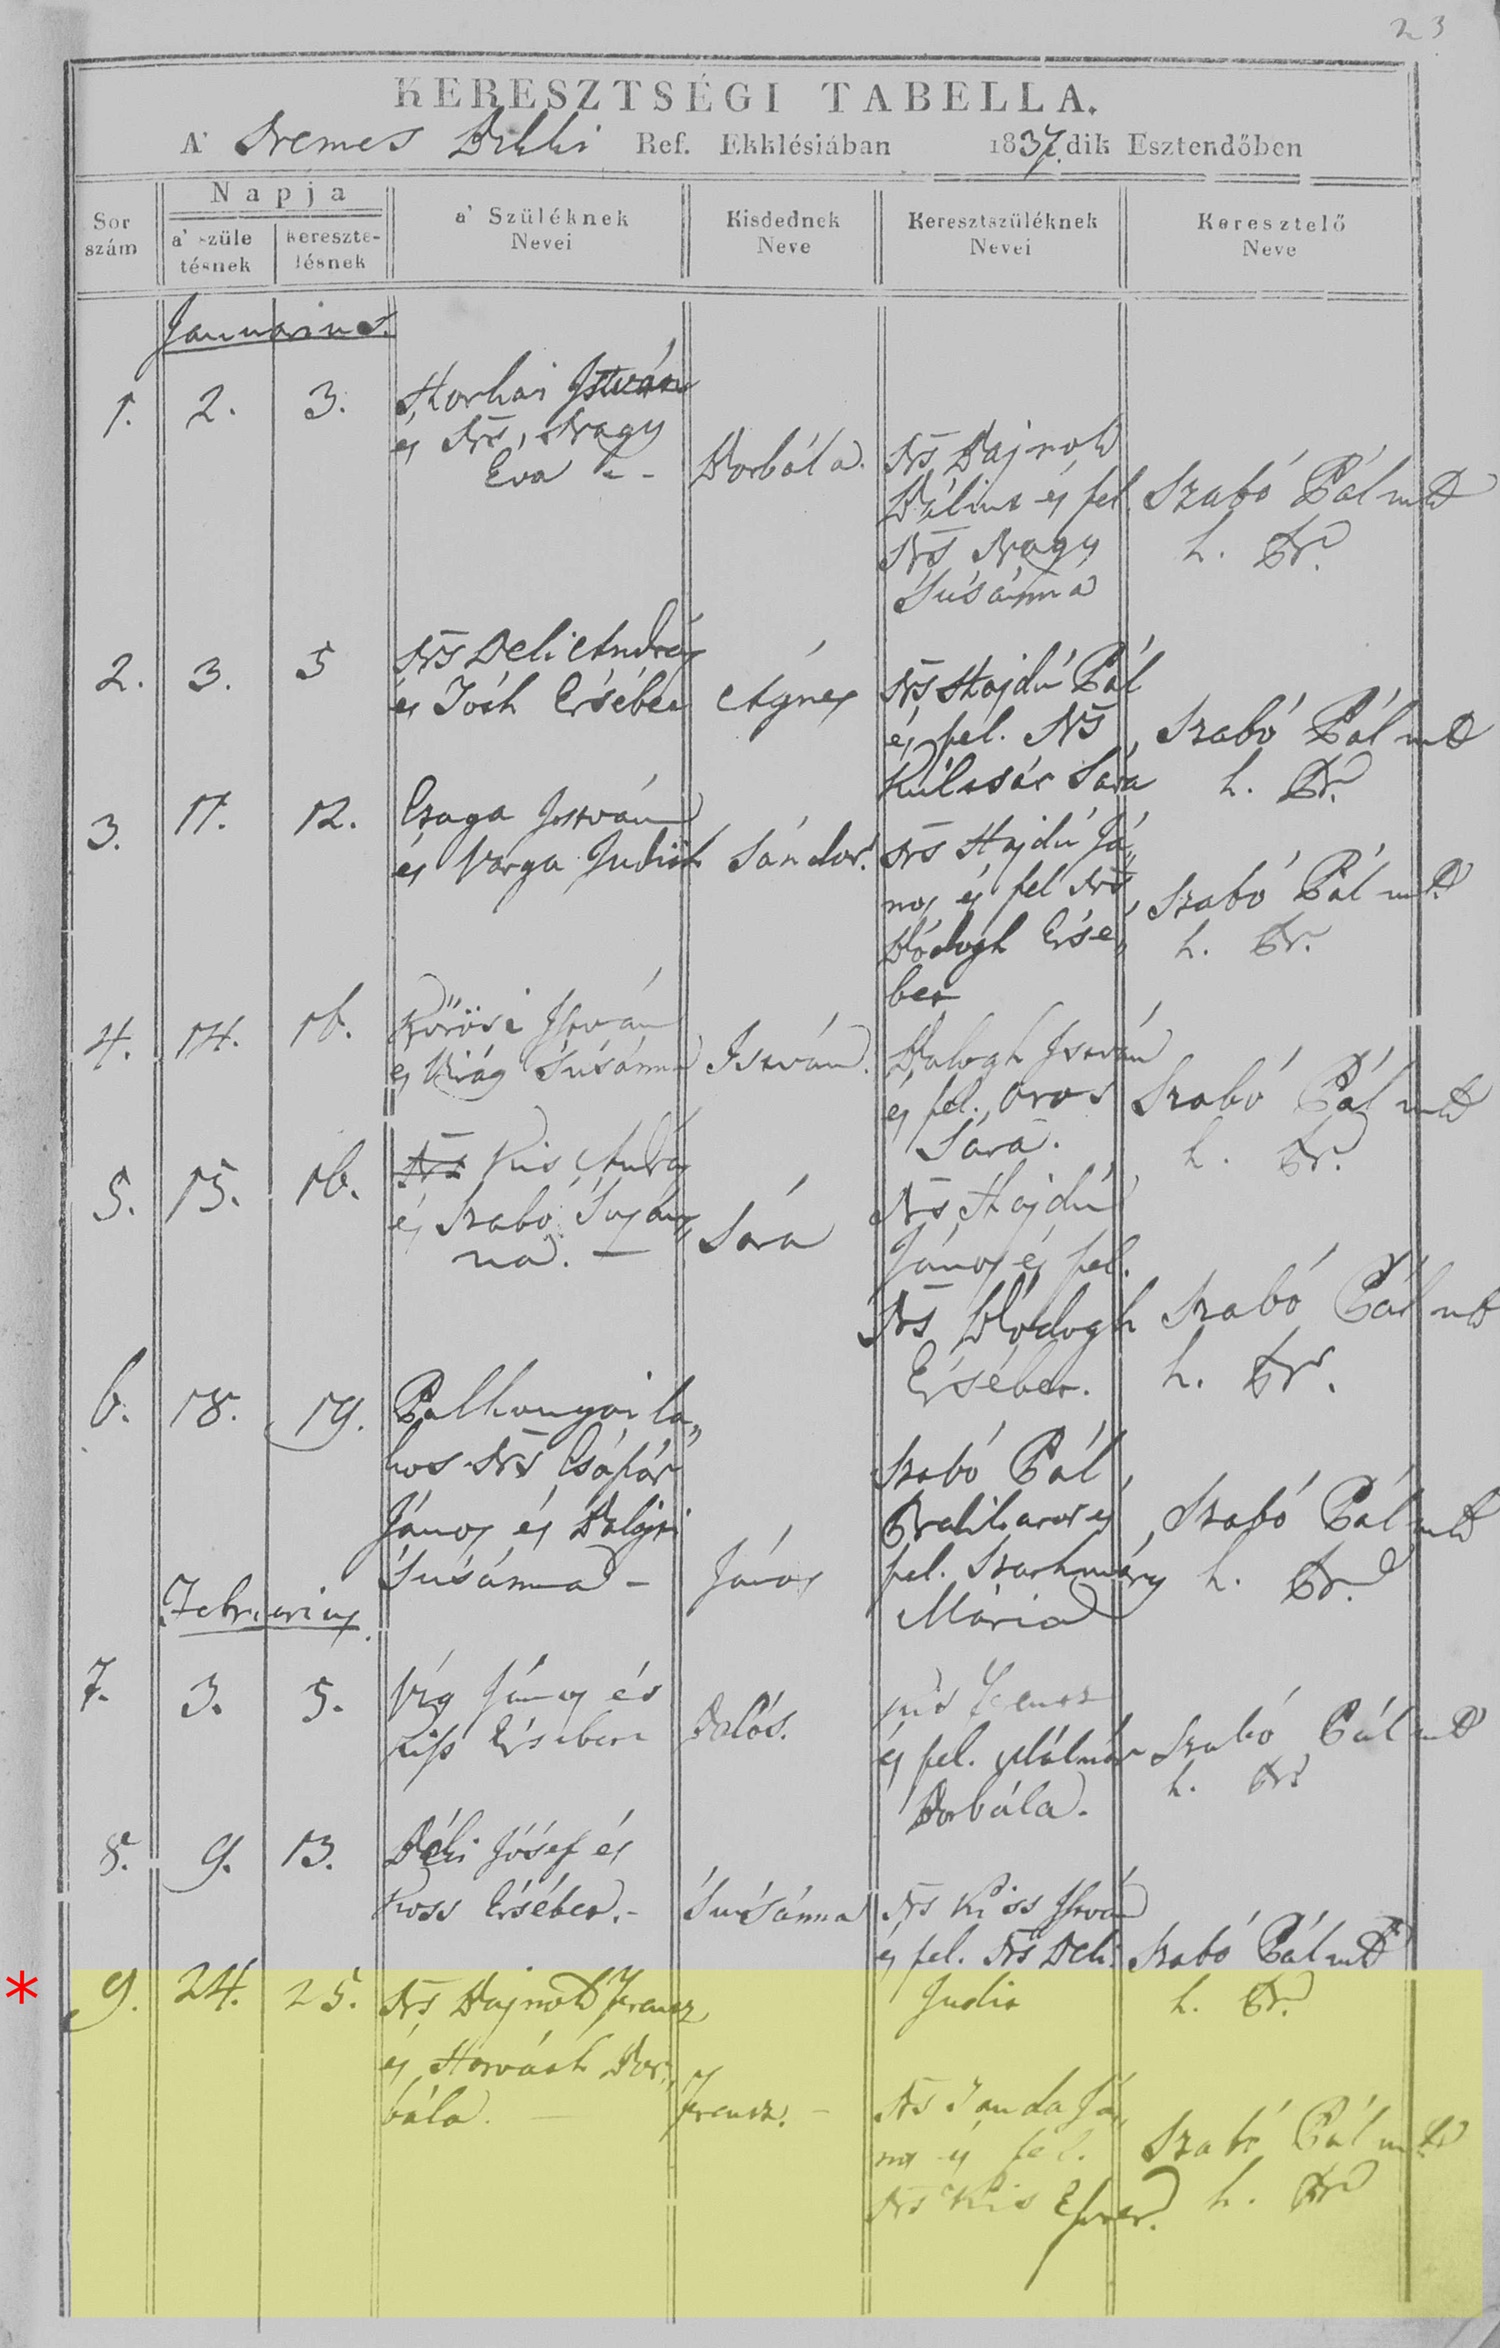 23
KERESZTSÉGI TABELLA.
A' Nemes Dékki Ref. Ekklésiában 1837.dik Esztendőben
Sor szám
Napja
a' szüle tésnek
kereszte- lésnek
a' Szüléknek Nevei
Kisdednek Neve
Keresztszüléknek Nevei
Keresztelő Neve
Januarius.
1. 2. 3.
Horhai István
és Ns, Nagy
Éva - -
Borbála.
Ns Bajnok
Bálint és fel.
Ns Nagy
Susánna
Szabó Pál mk
h. Pr.
2. 3. 5
Ns Deli András
és Tóth Ersébet
Ágnes
Ns Hajdú Pál
és fel. Ns
Kúlcsár Sára
Szabó Pál mk
h. Pr.
3. 11. 12.
Czaga István
és Varga Judith
Sándor.
Ns Hajdú Já,,
nos és fel Ns
Bódogh Ersé,,
bet
Szabó Pál mk
h. Pr.
4. 14. 16.
Kőrösi István
és Virág Susánna
István.
Balogh István
és fel. Oros
Sára.
Szabó Pál mk
h. Pr.
5. 15. 16.
Ns Kis András
és Szabó Susán,,
na. —
Sára
Ns Hajdú
János és fel.
Ns Bódogh
Ersébet.
Szabó Pál mk
h. Pr.
6. 18. 19.
Palkonyai la,,
kos Ns Csáfár
János és
Susánna -
János
Szabó Pál
Prédikátor és
fel. Szathmáry
Mária
Szabó Pál mk
h. Pr.
Februarius.
7. 3. 5.
Víg János és
Kiss Ersébet
Balás.
Ferencz
és fel. Molnár
Borbála.
Szabó Pál mk
h. Pr.
8. 9. 13.
Déki Jósef és
Koss Ersébet.-
Susánna
Ns Kiss István
és fel. Ns Deli
Judit
Szabó Pál mk
h. Pr.
*
9. 24. 25.
Ns Bajnok Ferencz
és Horváth Bor,,
bála. —
Ferencz. -
Ns Tanda Já,,
nos és fel.
Ns Kis Eszter.
Szabó Pál mk
h. Pr.